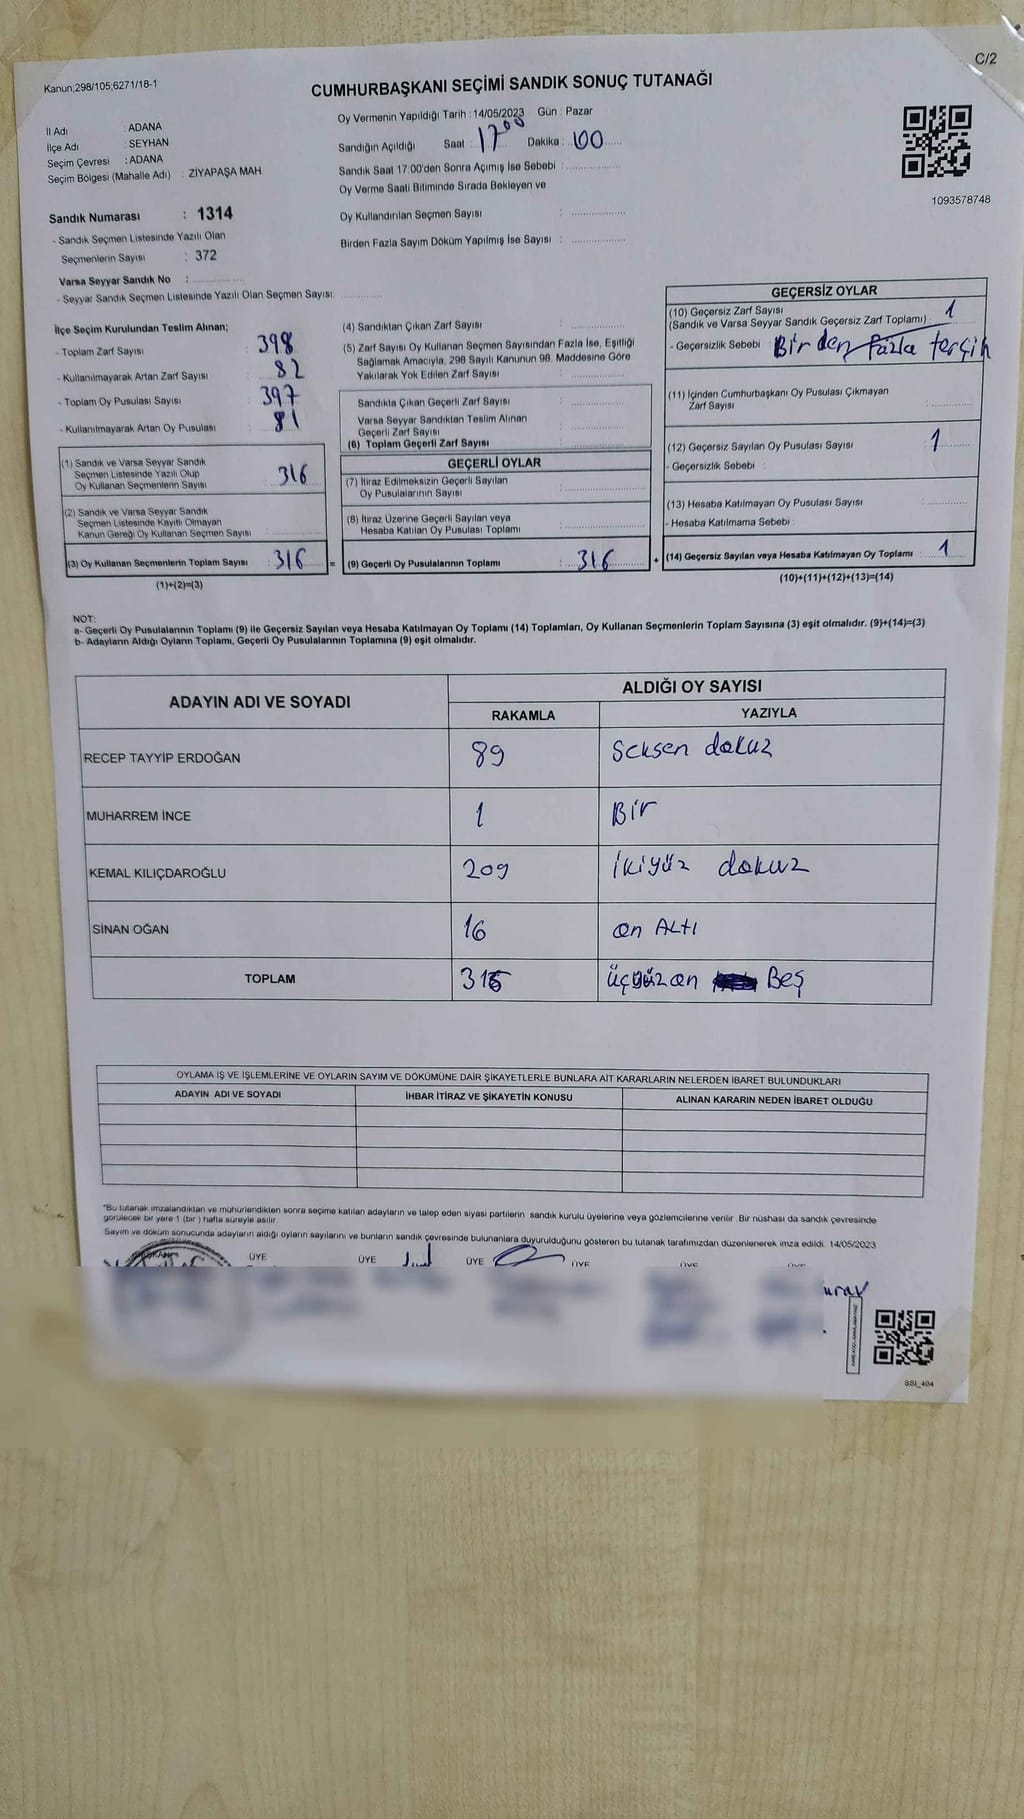 C/2
Kanun;298/105;6271/18-1
CUMHURBAŞKANI SEÇİMİ SANDIK SONUÇ TUTANAĞI
Oy Vermenin Yapıldığı Tarih : 14/05/2023 Gün : Pazar
İl Adı : ADANA
İlçe Adı : SEYHAN
Seçim Çevresi : ADANA
Seçim Bölgesi (Mahalle Adı) : ZİYAPAŞA MAH.
Sandık Numarası : 1314
- Sandık Seçmen Listesinde Yazılı Olan
Seçmenlerin Sayısı : 372
Varsa Seyyar Sandık No :
- Seyyar Sandık Seçmen Listesinde Yazılı Olan Seçmen Sayısı:
Sandığın Açıldığı Saat : 17⁰⁰ Dakika : 00
Sandık Saat 17:00'den Sonra Açımış İse Sebebi :
Oy Verme Saati Bitiminde Sırada Bekleyen ve
Oy Kullandırılan Seçmen Sayısı :
Birden Fazla Sayım Döküm Yapılmış İse Sayısı :
1093578748
İlçe Seçim Kurulundan Teslim Alınan;
- Toplam Zarf Sayısı : 398
- Kullanılmayarak Artan Zarf Sayısı : 82
- Toplam Oy Pusulası Sayısı : 397
- Kullanılmayarak Artan Oy Pusulası : 81
(1) Sandık ve Varsa Seyyar Sandık
Seçmen Listesinde Yazılı Olup
Oy Kullanan Seçmenlerin Sayısı : 316
(2) Sandık ve Varsa Seyyar Sandık
Seçmen Listesinde Kayıtlı Olmayan
Kanun Gereği Oy Kullanan Seçmen Sayısı :
(3) Oy Kullanan Seçmenlerin Toplam Sayısı : 316 =
(1)+(2)=(3)
(4) Sandıktan Çıkan Zarf Sayısı :
(5) Zarf Sayısı Oy Kullanan Seçmen Sayısından Fazla İse, Eşitliği
Sağlamak Amacıyla, 298 Sayılı Kanunun 98. Maddesine Göre
Yakılarak Yok Edilen Zarf Sayısı :
Sandıkta Çıkan Geçerli Zarf Sayısı :
Varsa Seyyar Sandıktan Teslim Alınan
Geçerli Zarf Sayısı :
(6) Toplam Geçerli Zarf Sayısı :
GEÇERLİ OYLAR
(7) İtiraz Edilmeksizin Geçerli Sayılan
Oy Pusulalarının Sayısı :
(8) İtiraz Üzerine Geçerli Sayılan veya
Hesaba Katılan Oy Pusulası Toplamı :
(9) Geçerli Oy Pusulalarının Toplamı : 316 +
GEÇERSİZ OYLAR
(10) Geçersiz Zarf Sayısı
(Sandık ve Varsa Seyyar Sandık Geçersiz Zarf Toplamı) : 1
- Geçersizlik Sebebi : Birden fazla tercih
(11) İçinden Cumhurbaşkanı Oy Pusulası Çıkmayan
Zarf Sayısı :
(12) Geçersiz Sayılan Oy Pusulası Sayısı : 1
- Geçersizlik Sebebi :
(13) Hesaba Katılmayan Oy Pusulası Sayısı :
- Hesaba Katılmama Sebebi :
(14) Geçersiz Sayılan veya Hesaba Katılmayan Oy Toplamı : 1
(10)+(11)+(12)+(13)=(14)
NOT:
a- Geçerli Oy Pusulalarının Toplamı (9) ile Geçersiz Sayılan veya Hesaba Katılmayan Oy Toplamı (14) Toplamları, Oy Kullanan Seçmenlerin Toplam Sayısına (3) eşit olmalıdır. (9)+(14)=(3)
b- Adayların Aldığı Oyların Toplamı, Geçerli Oy Pusulalarının Toplamına (9) eşit olmalıdır.
ADAYIN ADI VE SOYADI ALDIĞI OY SAYISI
RAKAMLA YAZIYLA
RECEP TAYYİP ERDOĞAN 89 Seksen dokuz
MUHARREM İNCE 1 Bir
KEMAL KILIÇDAROĞLU 209 İkiyüz dokuz
SİNAN OĞAN 16 on Altı
TOPLAM 315 üçyüzon Beş
OYLAMA İŞ VE İŞLEMLERİNE VE OYLARIN SAYIM VE DÖKÜMÜNE DAİR ŞİKAYETLERLE BUNLARA AİT KARARLARIN NELERDEN İBARET BULUNDUKLARI
ADAYIN ADI VE SOYADI İHBAR İTİRAZ VE ŞİKAYETİN KONUSU ALINAN KARARIN NEDEN İBARET OLDUĞU
"Bu tutanak imzalandıktan ve mühürlendikten sonra seçime katılan adayların ve talep eden siyasi partilerin sandık kurulu üyelerine veya gözlemcilerine verilir. Bir nüshası da sandık çevresinde
görülecek bir yere 1 (bir ) hafta süreyle asılır.
Sayım ve döküm sonucunda adayların aldığı oyların sayılarını ve bunların sandık çevresinde bulunanlara duyurulduğunu gösteren bu tutanak tarafımızdan düzenlenerek imza edildi. 14/05/2023
ÜYE ÜYE ÜYE ÜYE ÜYE ÜYE
SSI_404